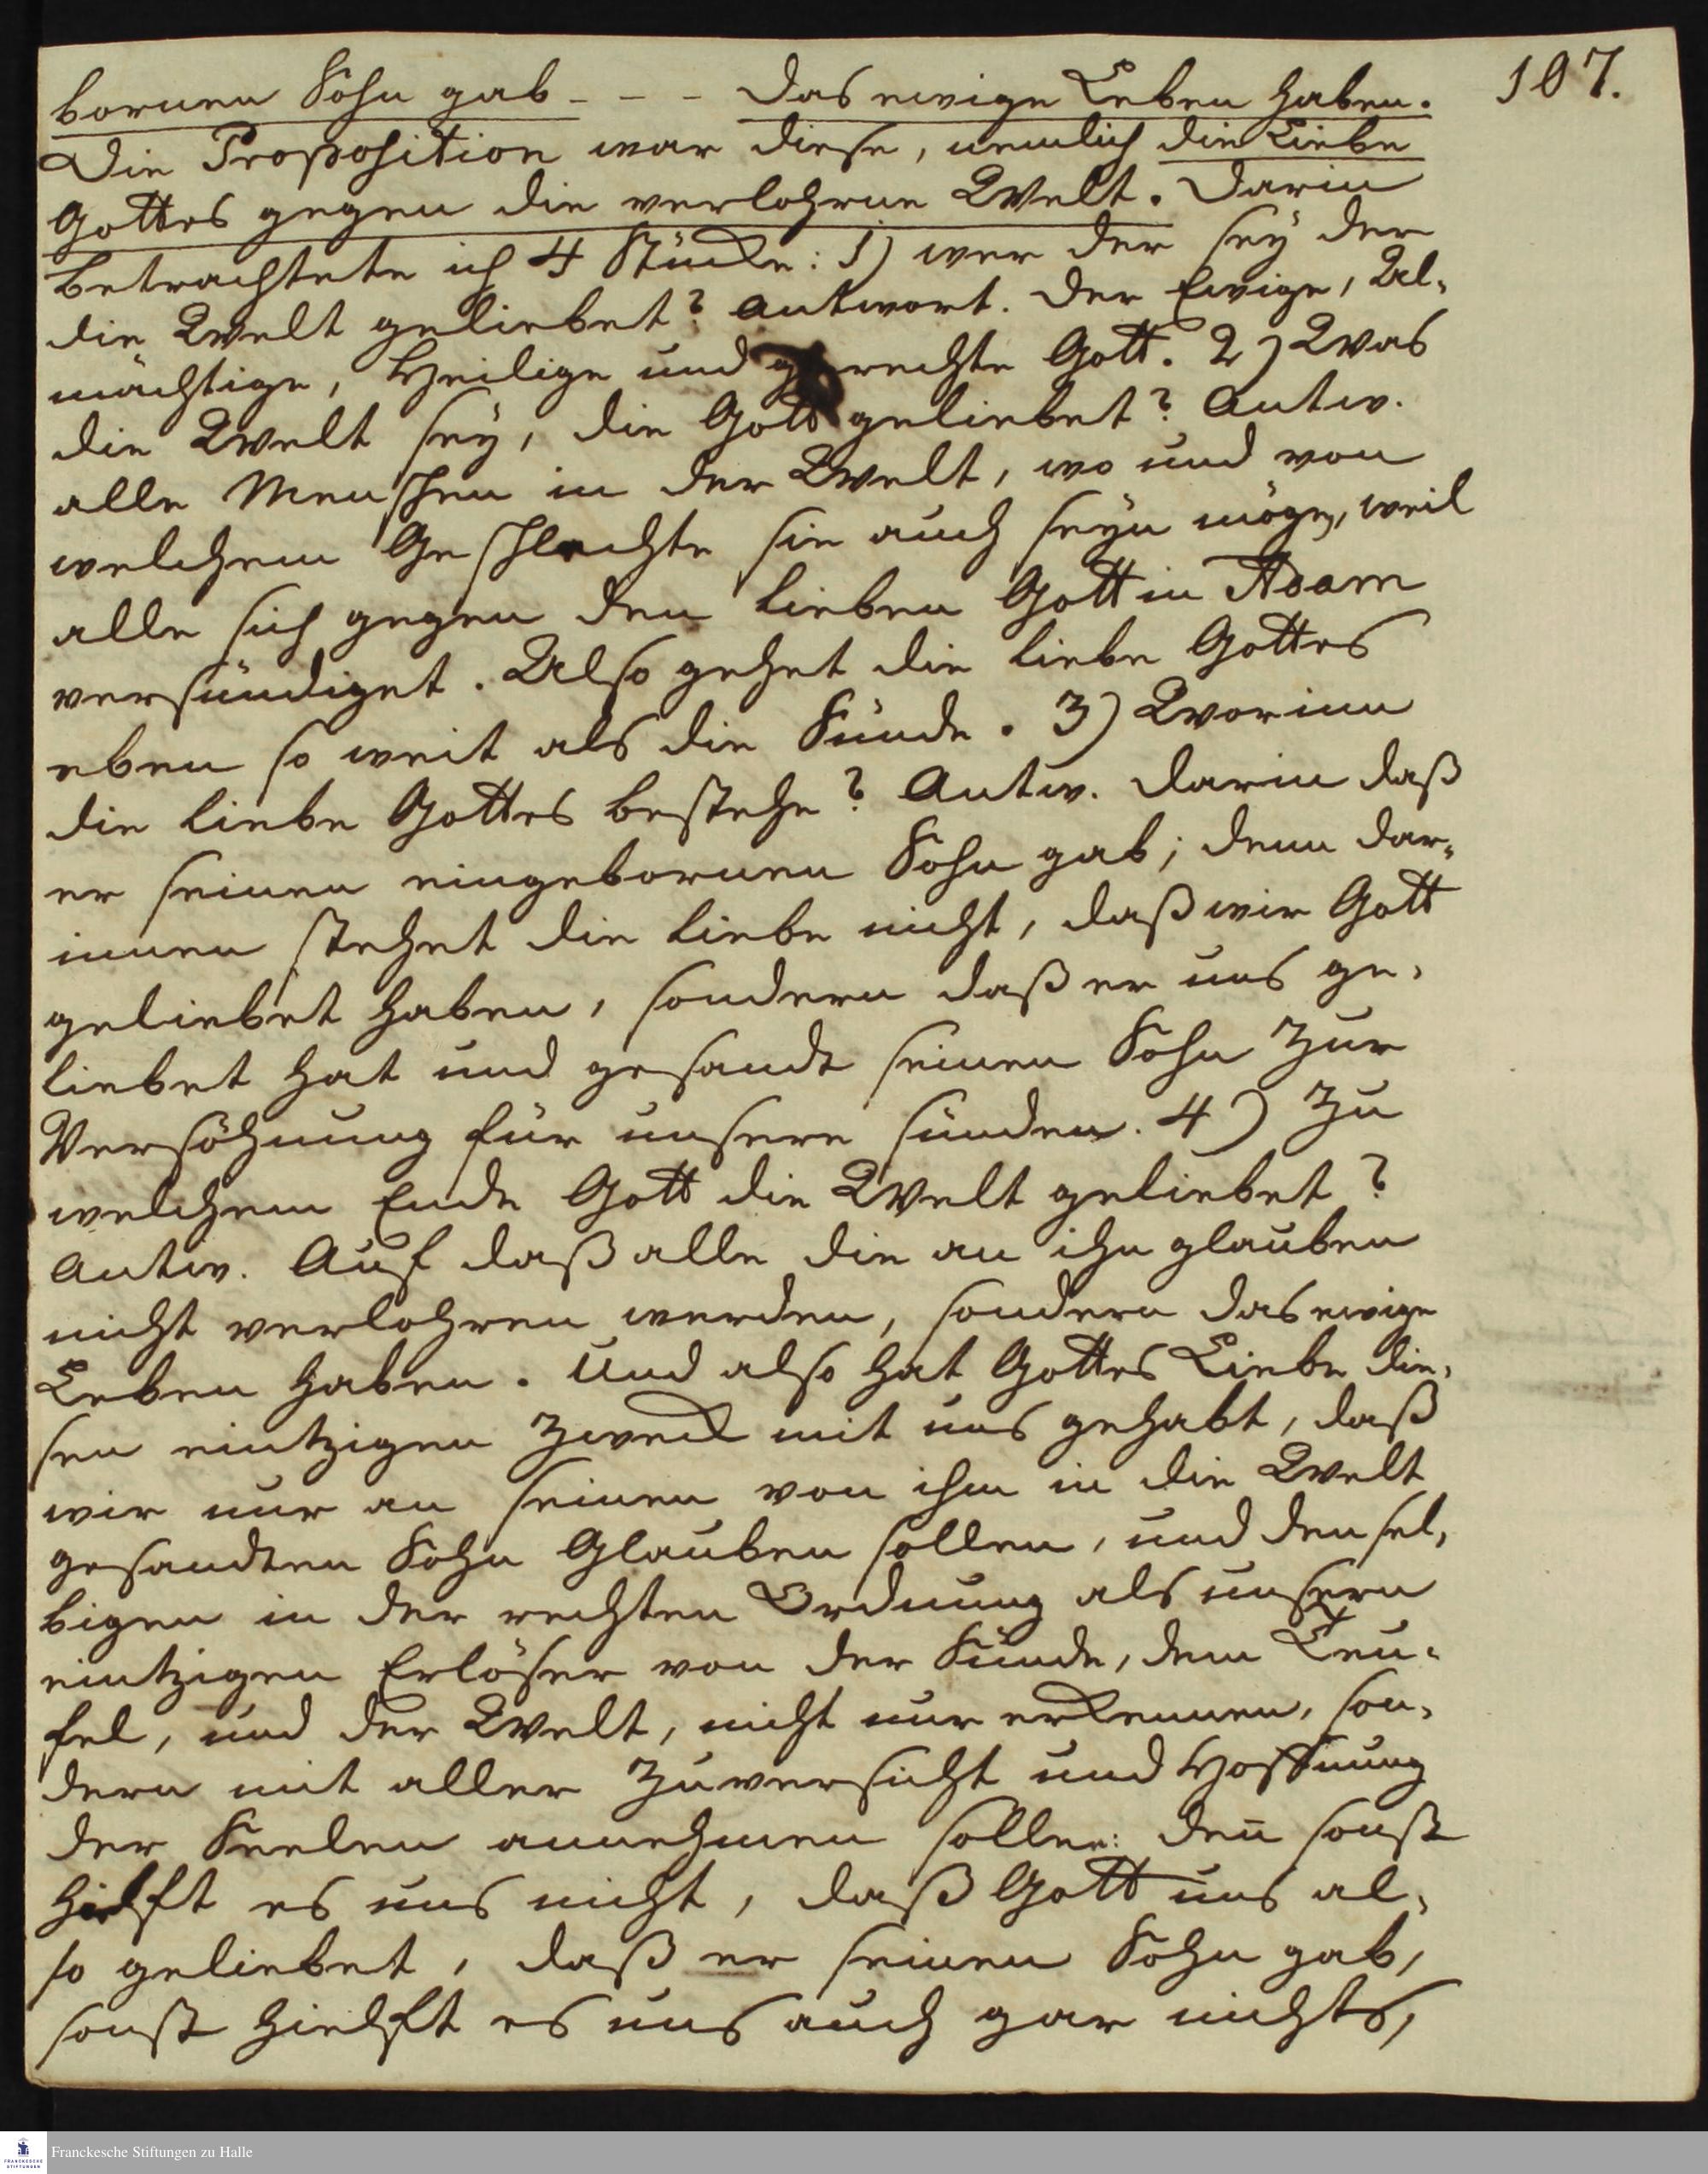 107.
bornen Sohn gab - - - das ewige Leben haben.
Die Proposition war diese, nemlich die Liebe
Gottes gegen die verlohrne Welt. Darin
betrachtete ich 4 Stücke: 1) wer der sey der
die Welt geliebet? Antwort. Der Ewige, Al-
mächtige, Heilige und gerechte Gott. 2) Was
die Welt sey, die Gott geliebet? Antw.
alle Menschen in der Welt, wo und von
welchem Geschlechte sie auch seyn mögen, weil
alle sich gegen den lieben Gott in Adam
versündiget. Also gehet die Liebe Gottes
eben so weit als die Sünde. 3) Worinn
die Liebe Gottes bestehe? Antw. darin daß
er seinen eingebornen Sohn gab; denn dar-
innen stehet die Liebe nicht, daß wir Gott
geliebet haben, sondern daß er uns ge-
liebet hat und gesandt seinen Sohn zur
Versöhnung für unsere Sünden. 4) Zu
welchem Ende Gott die Welt geliebet?
Antw. Auf daß alle die an ihn glauben
nicht verlohren werden, sondern das ewige
Leben haben. Und also hat Gottes Liebe die-
sen eintzigen Zweck mit uns gehabt, daß
wir nur an seinen von ihm in die Welt
gesandten Sohn Glauben sollen, und densel-
bigen in der rechten Ordnung als unsern
eintzigen Erlöser von der Sünde, dem Teu-
fel, und der Welt, nicht nur erkennen, son-
dern mit aller Zuversicht und Hoffnung
der Seelen annehmen sollen: den̄ sonst
hilft es uns nicht, daß Gott uns al-
so geliebet, daß er seinen Sohn gab,
sonst hielft es uns auch gar nichts,
Franckesche Stiftungen zu Halle
FRANCKESCHE
STIFTUNGEN